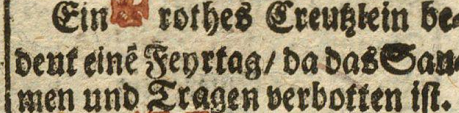 Ein ✠ rothes Creutzlein be-
deut einē Feyrtag/ da das San-
men und Tragen verbotten ist.